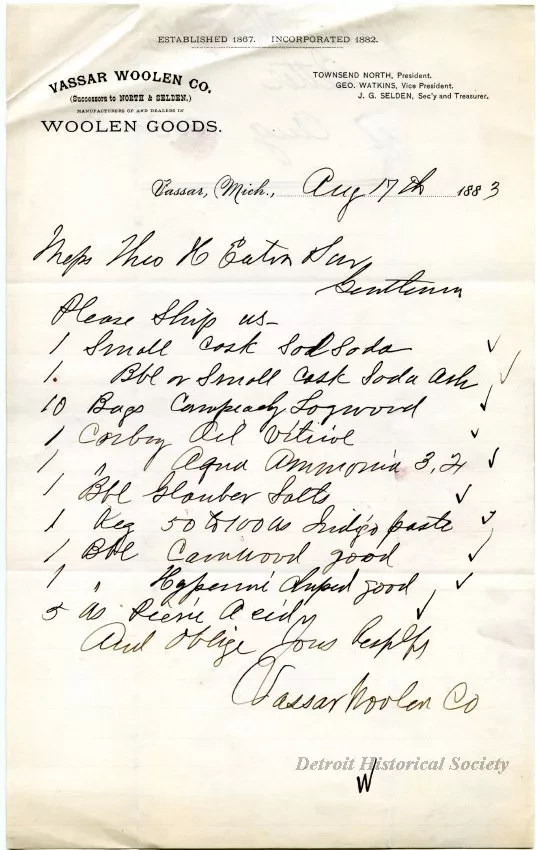 ESTABLISHED 1867. INCORPORATED 1882.
VASSAR WOOLEN CO.
(Successors to NORTH & SELDEN.)
MANUFACTURERS OF AND DEALERS IN
WOOLEN GOODS.
TOWNSEND NORTH, President.
GEO. WATKINS, Vice President.
J. G. SELDEN, Sec'y and Treasurer.
Vassar, Mich., Aug 17th 1883
Mess Theo H Eaton & Son
Gentlemen
Please Ship us
1 Small Cask Sal Soda
1. Bbl or Small Cask Soda Ash
10 Bags Campeachy Logwood
1 Carboy Oil Vitriol
1 " Aqua Ammonia 3,
1 Bbl Glauber Salts
1 Keg 50 to 100 lbs Indigo paste
1 Bbl Camwood good
1 " Hypernic Chiped good
5 lbs Acid
And Oblige Yours Respfy
Vassar Woolen Co
Detroit Historical Society
W